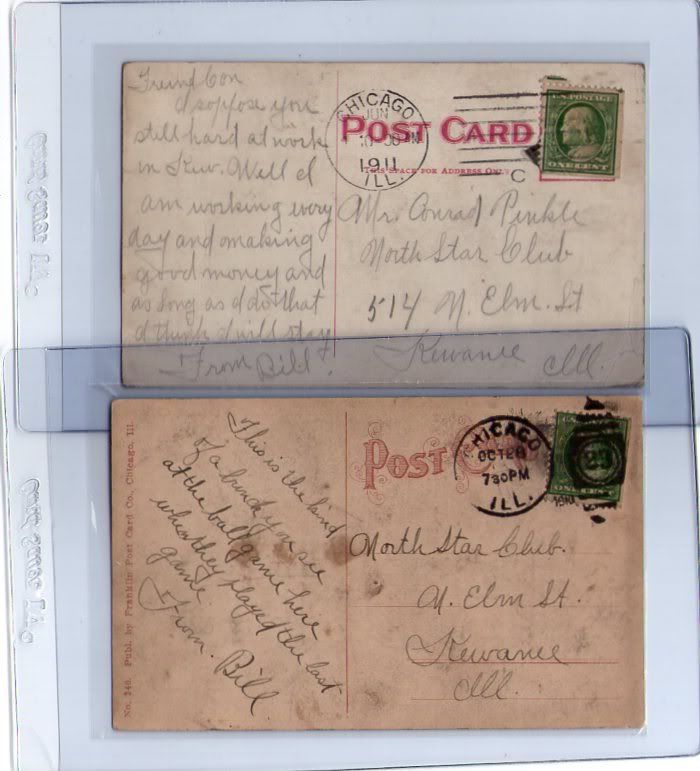 Friend Con
I soppose you
still hard at work
in Kew. Well I
am working every
day and making
good money and
as long as I do that
I think I will stay
From Bill.
CHICAGO
JUN
1911
ILL.
POST CARD
THIS SPACE FOR ADDRESS ONLY
C
U.S. POSTAGE
ONE CENT
Mr. Conrad Pinkle
North Star Club
514 N. Elm. St
Kewanee
Ill.
No. 246. Publ. by Franklin Post Card Co., Chicago, Ill.
This is the kind
of a bunch you see
at the ball game here
when they played the last
game
From. Bill
POST
CHICAGO
OCT 28
730PM
ILL.
1910
ONE CENT
North Star Club.
N. Elm St.
Kewanee
Ill.